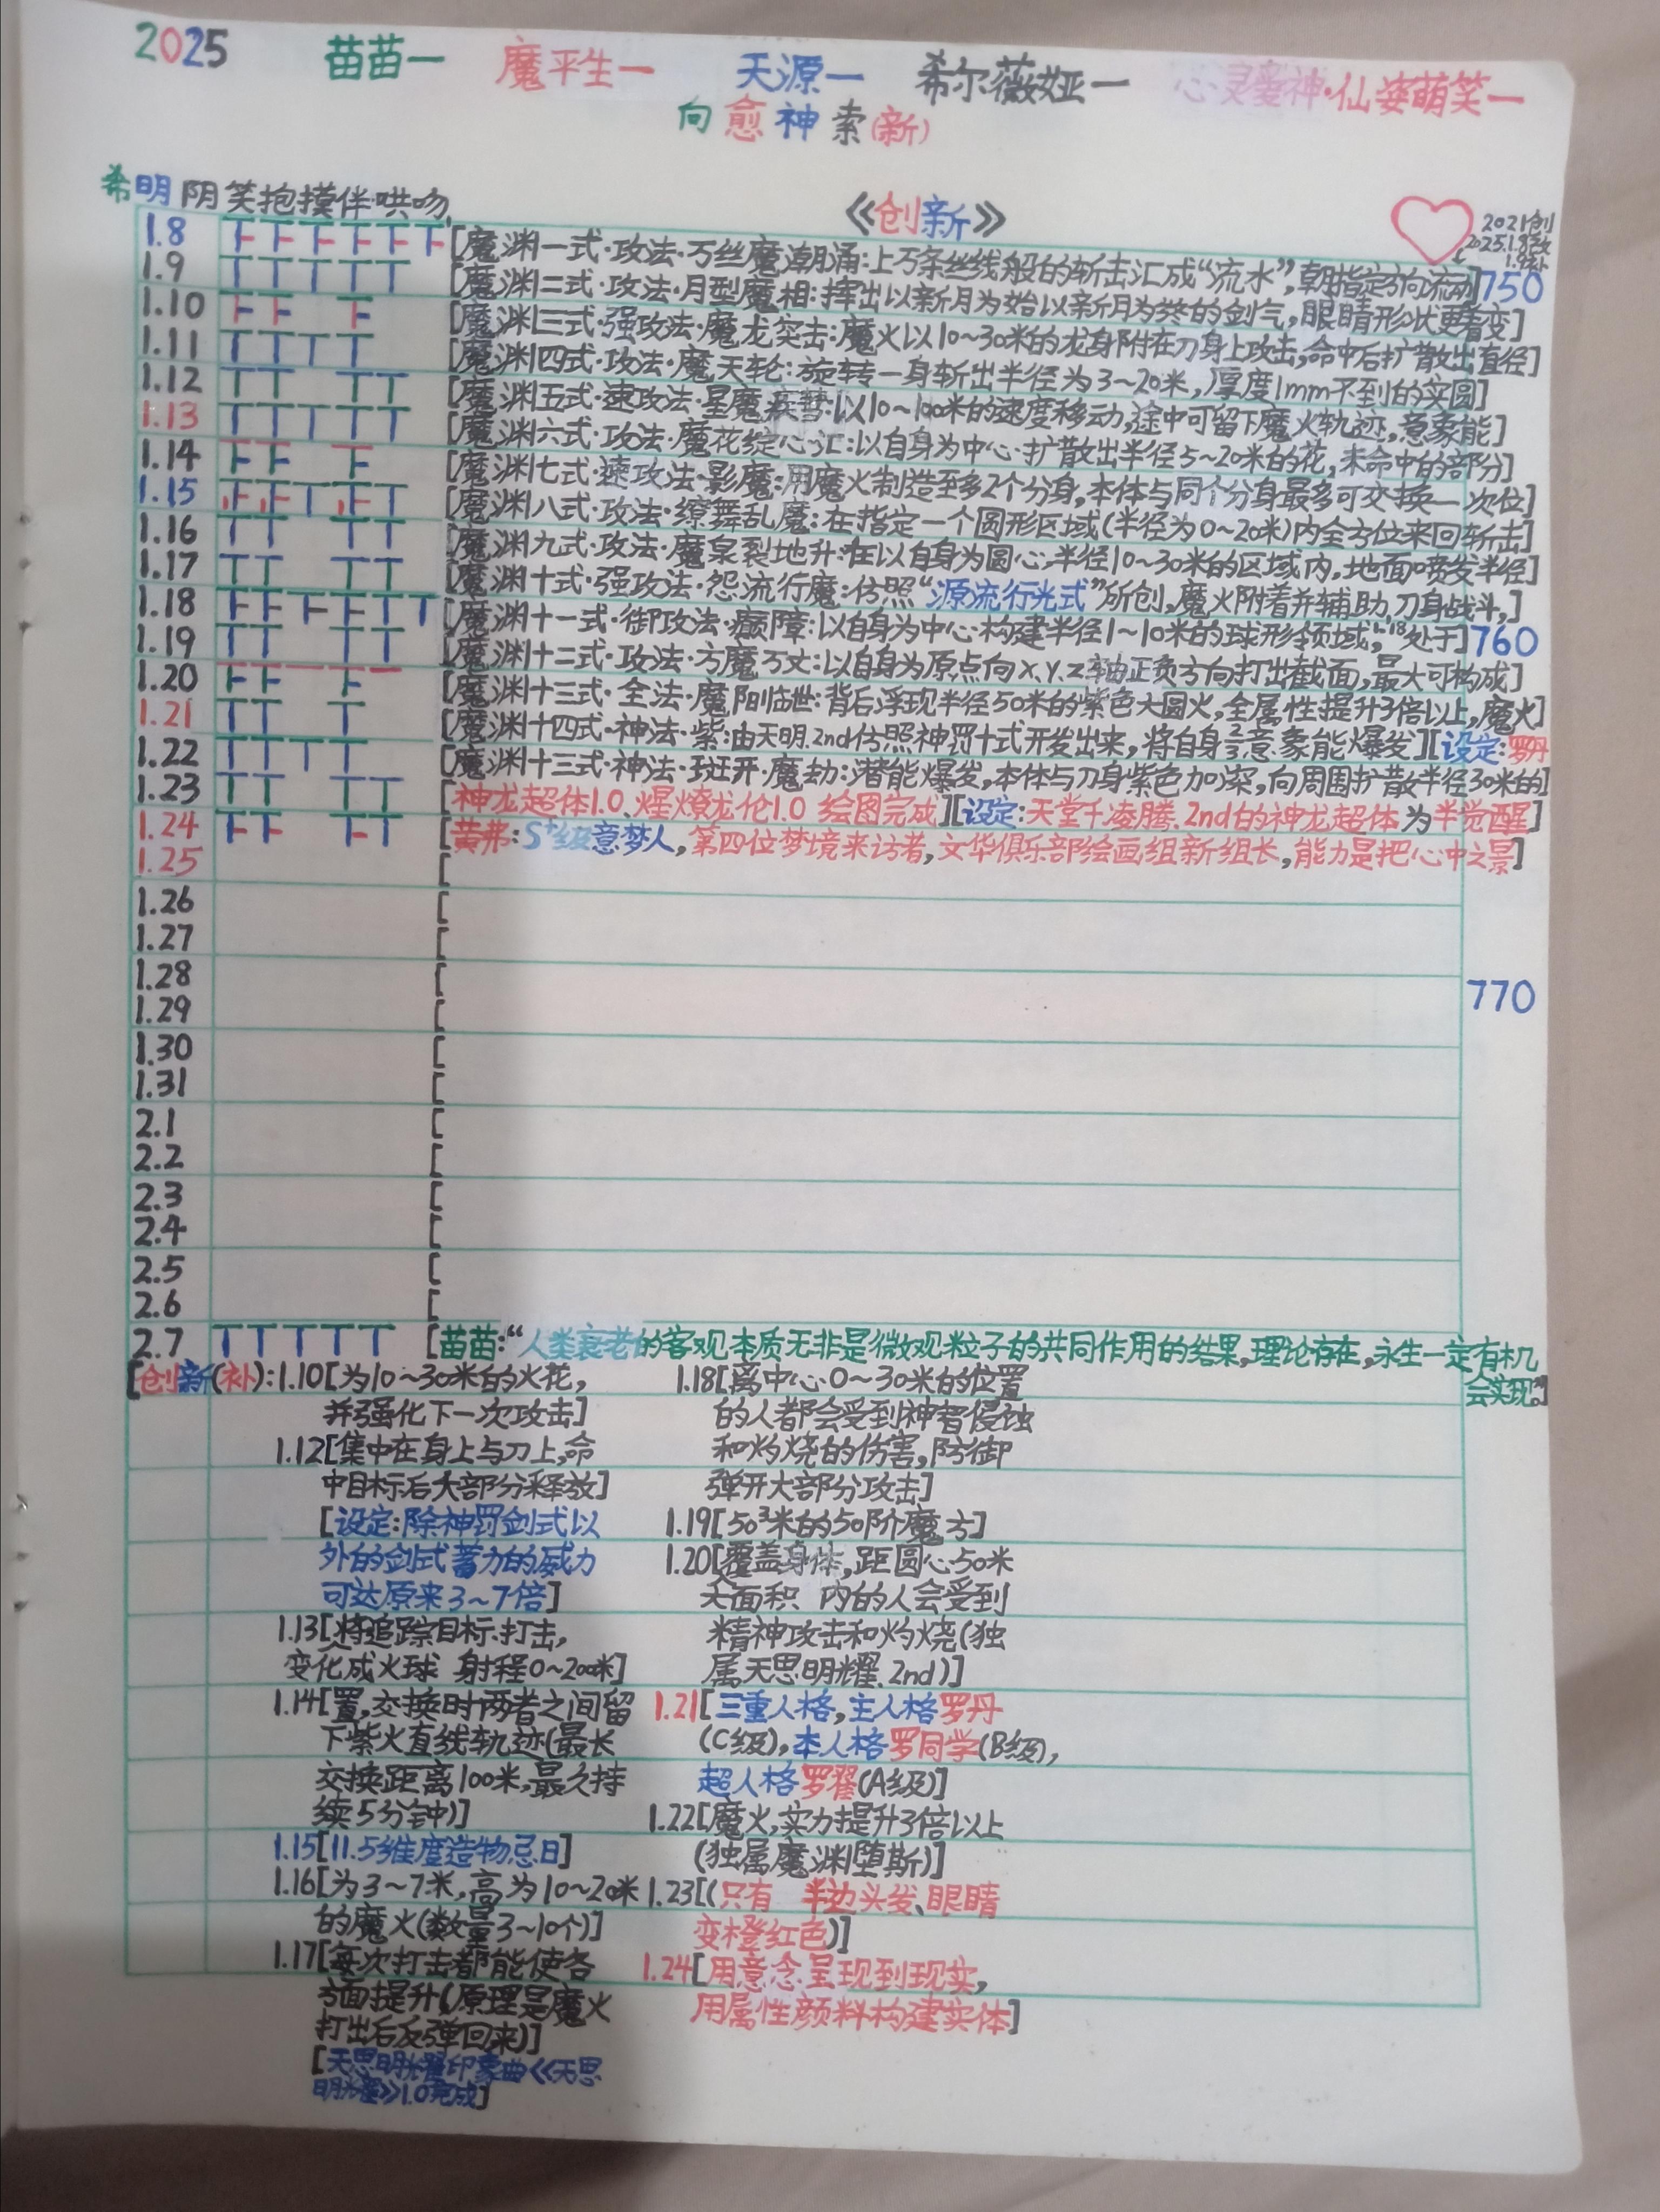 2025 苗苗一 魔平生一 天源一 希尔薇娅一 心灵爱神·仙姿萌笑一
向愈神索(新)
希明阴笑抱摸伴哄吻
《创新》
2021创
2025.1.8改
1.9补
1.8 [魔渊一式·攻法·万丝魔潮涌:上万条丝线般的斩击汇成“流水”,朝指定方向流动] 750
1.9 [魔渊二式·攻法·月型魔相:挥出以新月为始以新月为终的剑气,眼睛形状更着变]
1.10 [魔渊三式·强攻法·魔龙突击:魔火以10~30米的龙身附在刀身上攻击,命中后扩散出直径]
1.11 [魔渊四式·攻法·魔天轮:旋转一身斩出半径为3~20米,厚度1mm不到的实圆]
1.12 [魔渊五式·速攻法·星魔疾势·以10~100米的速度移动,途中可留下魔火轨迹,意象能]
1.13 [魔渊六式·攻法·魔花绽心汇:以自身为中心扩散出半径5~20米的花,未命中的部分]
1.14 [魔渊七式·速攻法·影魔:用魔火制造至多2个分身,本体与同个分身最多可交换一次位]
1.15 [魔渊八式·攻法·缭舞乱魔:在指定一个圆形区域(半径为0~20米)内全方位来回斩击]
1.16 [魔渊九式·攻法·魔泉裂地升:在以自身为圆心,半径10~30米的区域内,地面喷发半径]
1.17 [魔渊十式·强攻法·怨流行魔:仿照“源流行光式”所创,魔火附着并辅助刀身战斗,]
1.18 [魔渊十一式·御攻法·癫障:以自身为中心构建半径1~10米的球形领域,1.18处于] 760
1.19 [魔渊十二式·攻法·方魔万丈:以自身为原点向X.Y.Z轴正负方向打出截面,最大可构成]
1.20 [魔渊十三式·全法·魔阳临世:背后浮现半径50米的紫色大圆火,全属性提升3倍以上,魔火]
1.21 [魔渊十四式·神法·紫:由天明.2nd仿照神罚十式开发出来,将自身意象能爆发][设定:罗丹
1.22 [魔渊十三式·神法·斑开·魔劫:潜能爆发,本体与刀身紫色加深,向周围扩散半径30米的]
1.23 [神龙超体1.0、燿燎龙伦1.0 绘图完成][设定:天堂千凌腾.2nd的神龙超体为半觉醒]
1.24 [黄弗:S⁺级意梦人,第四位梦境来访者,文华俱乐部绘画组新组长,能力是把心中之景]
1.25 [
1.26 [
1.27 [
1.28 [ 770
1.29 [
1.30 [
1.31 [
2.1 [
2.2 [
2.3 [
2.4 [
2.5 [
2.6 [
2.7 [苗苗:“人类衰老的客观本质无非是微观粒子的共同作用的结果,理论存在,永生一定有机
会实现。”]
[创新(补):1.10[为10~30米的火花,
并强化下一次攻击]
1.12[集中在身上与刀上,命
中目标后大部分释放]
[设定:除神罚剑式以
外的剑式蓄力的威力
可达原来3~7倍]
1.13[将追踪目标.打击,
变化成火球 射程0~200米]
1.14[置,交换时两者之间留
下紫火直线轨迹(最长
交换距离100米,最久持
续5分钟)]
1.15[11.5维度造物忌日]
1.16[为3~7米,高为10~20米
的魔火(数量3~10个)]
1.17[每次打击都能使各
方面提升(原理是魔火
打出后反弹回来)]
[天思明耀印象曲《天思
明耀》1.0完成]
1.18[离中心0~30米的位置
的人都会受到神智侵蚀
和灼烧的伤害,防御
弹开大部分攻击]
1.19[50³米的50阶魔方]
1.20[覆盖身体,距圆心50米
大面积 内的人会受到
精神攻击和灼烧(独
属天思明耀.2nd)]
1.21[三重人格,主人格罗丹
(C级),本人格罗同学(B级),
超人格罗翟(A级)]
1.22[魔火,实力提升3倍以上
(独属魔渊堕斯)]
1.23[(只有 半边头发、眼睛
变橙红色)]
1.24[用意念呈现到现实,
用属性颜料构建实体]